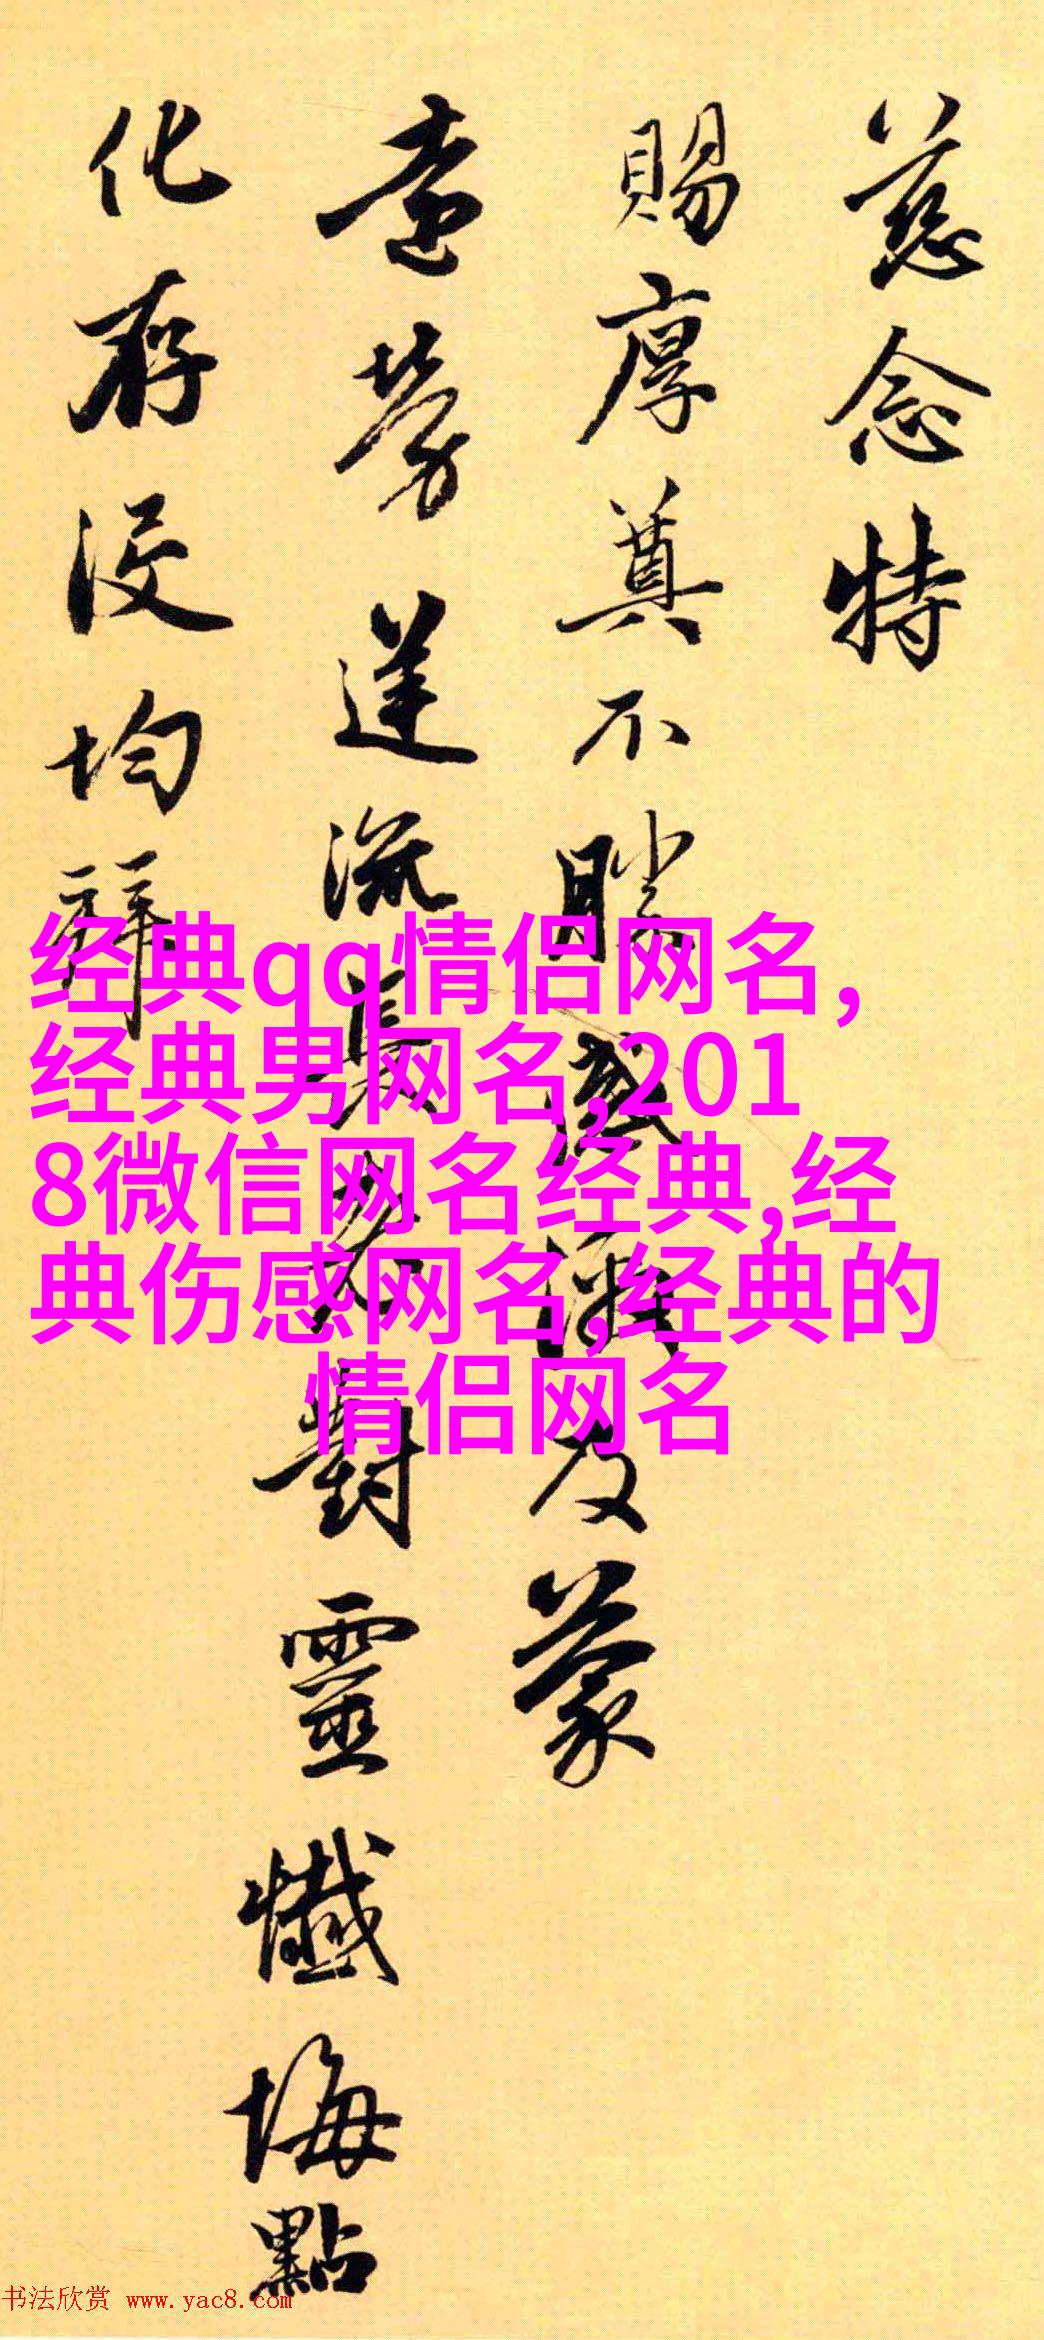 慈念特
賜厚奠不勝感激及蒙
流長老對靈懺悔點
化存没均拜
经典qq情侣网名,
经典男网名,201
8微信网名经典,经
典伤感网名,经典的
情侣网名
书法欣赏 www.yac8.com